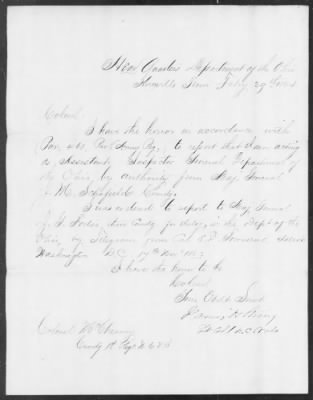 Head Quarters Department of the Ohio
Knoxville Tenn July 29th 1864
Colonel.
I have the honor in accordance with
Par. 468 Rev'd Army Reg. to report that I am acting
as Assistant Inspector General Department of
the Ohio, by authority from Maj. General
J. M. Schofield Comdg.
I was ordered to report to Maj. General
J. G. Foster, then Comdg for duty, in the Dept of the
Ohio, by Telegram from Col. E. D. Townsend
Washington D.C. 17th
I have the honor to be
Colonel
Your Obdt Servt
Colonel
Comdg 1st Regt